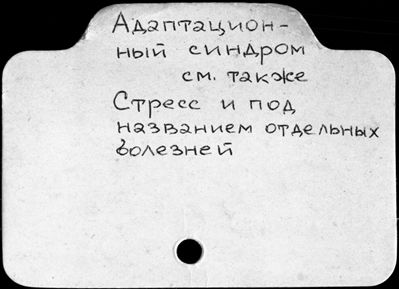 Адаптацион-
ный синдром
см. также
Стресс и под
названием отдельных
болезней